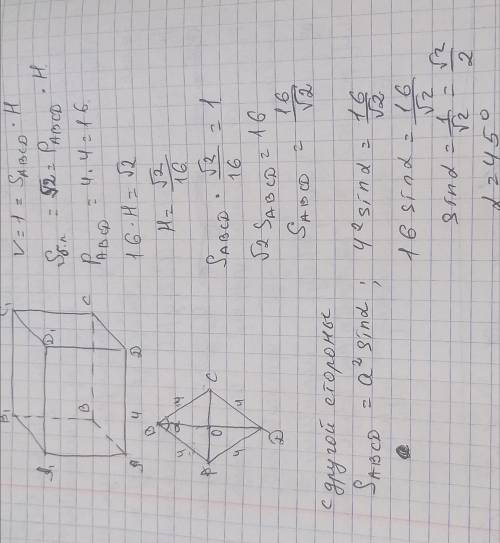 V = 1 = S_ABCD · H
S_б.п. = √2 = P_ABCD · H
P_ABCD = 4 · 4 = 16
16 · H = √2
H = √2/16
S_ABCD · √2/16 = 1
√2 S_ABCD = 16
S_ABCD = 16/√2
B₁
C₁
A₁
D₁
B
C
A
4
D
B
α
4
4
A
O
C
4
4
D
с другой стороны
S_ABCD = a² sinα ; 4² sinα = 16/√2
16 sinα = 16/√2
sinα = 1/√2 = √2/2
α = 45°